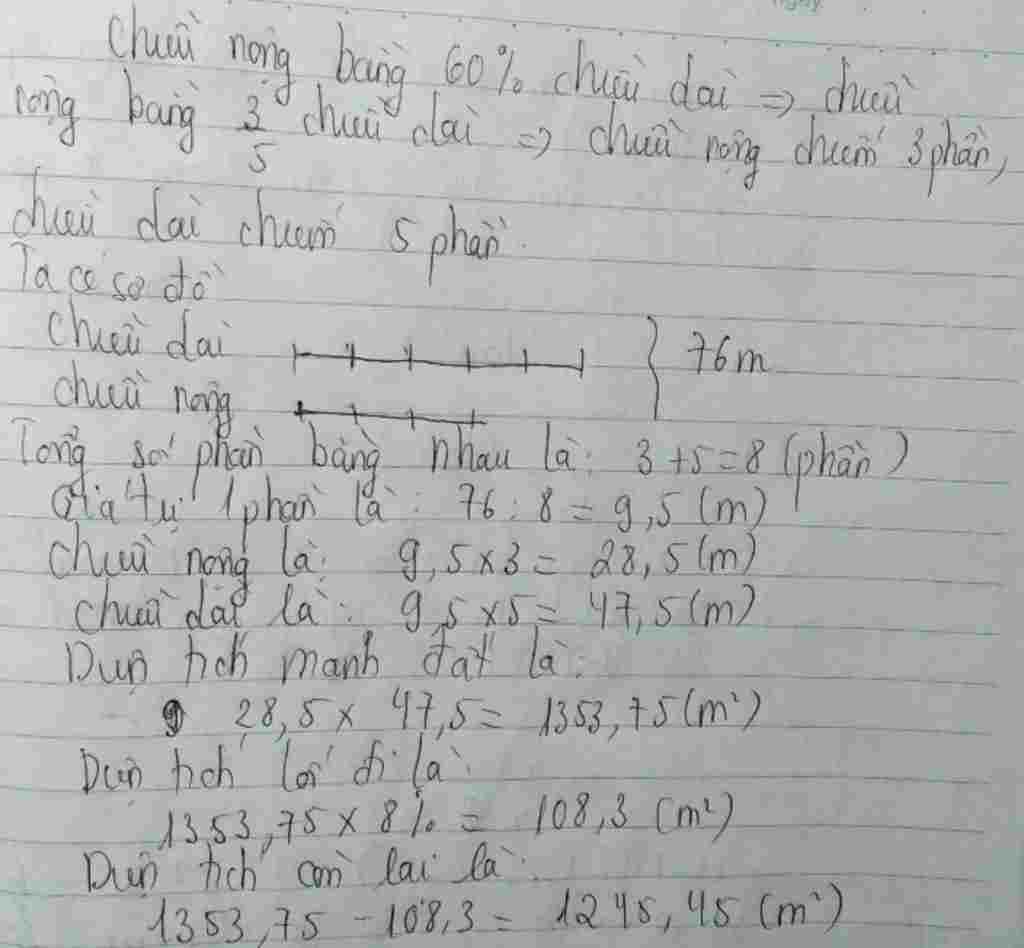 Chiều rộng bằng 60% chiều dài => chiều
rộng bằng 3/5 chiều dài => chiều rộng chiếm 3 phần,
chiều dài chiếm 5 phần.
Ta có sơ đồ
Chiều dài 76m
chiều rộng
Tổng số phần bằng nhau là: 3 + 5 = 8 (phần)
Giá trị 1 phần là: 76 : 8 = 9,5 (m)
Chiều rộng là: 9,5 x 3 = 28,5 (m)
chiều dài là: 9,5 x 5 = 47,5 (m)
Diện tích mảnh đất là:
28,5 x 47,5 = 1353,75 (m²)
Diện tích lối đi là:
1353,75 x 8% = 108,3 (m²)
Diện tích còn lại là:
1353,75 - 108,3 = 1245,45 (m²)